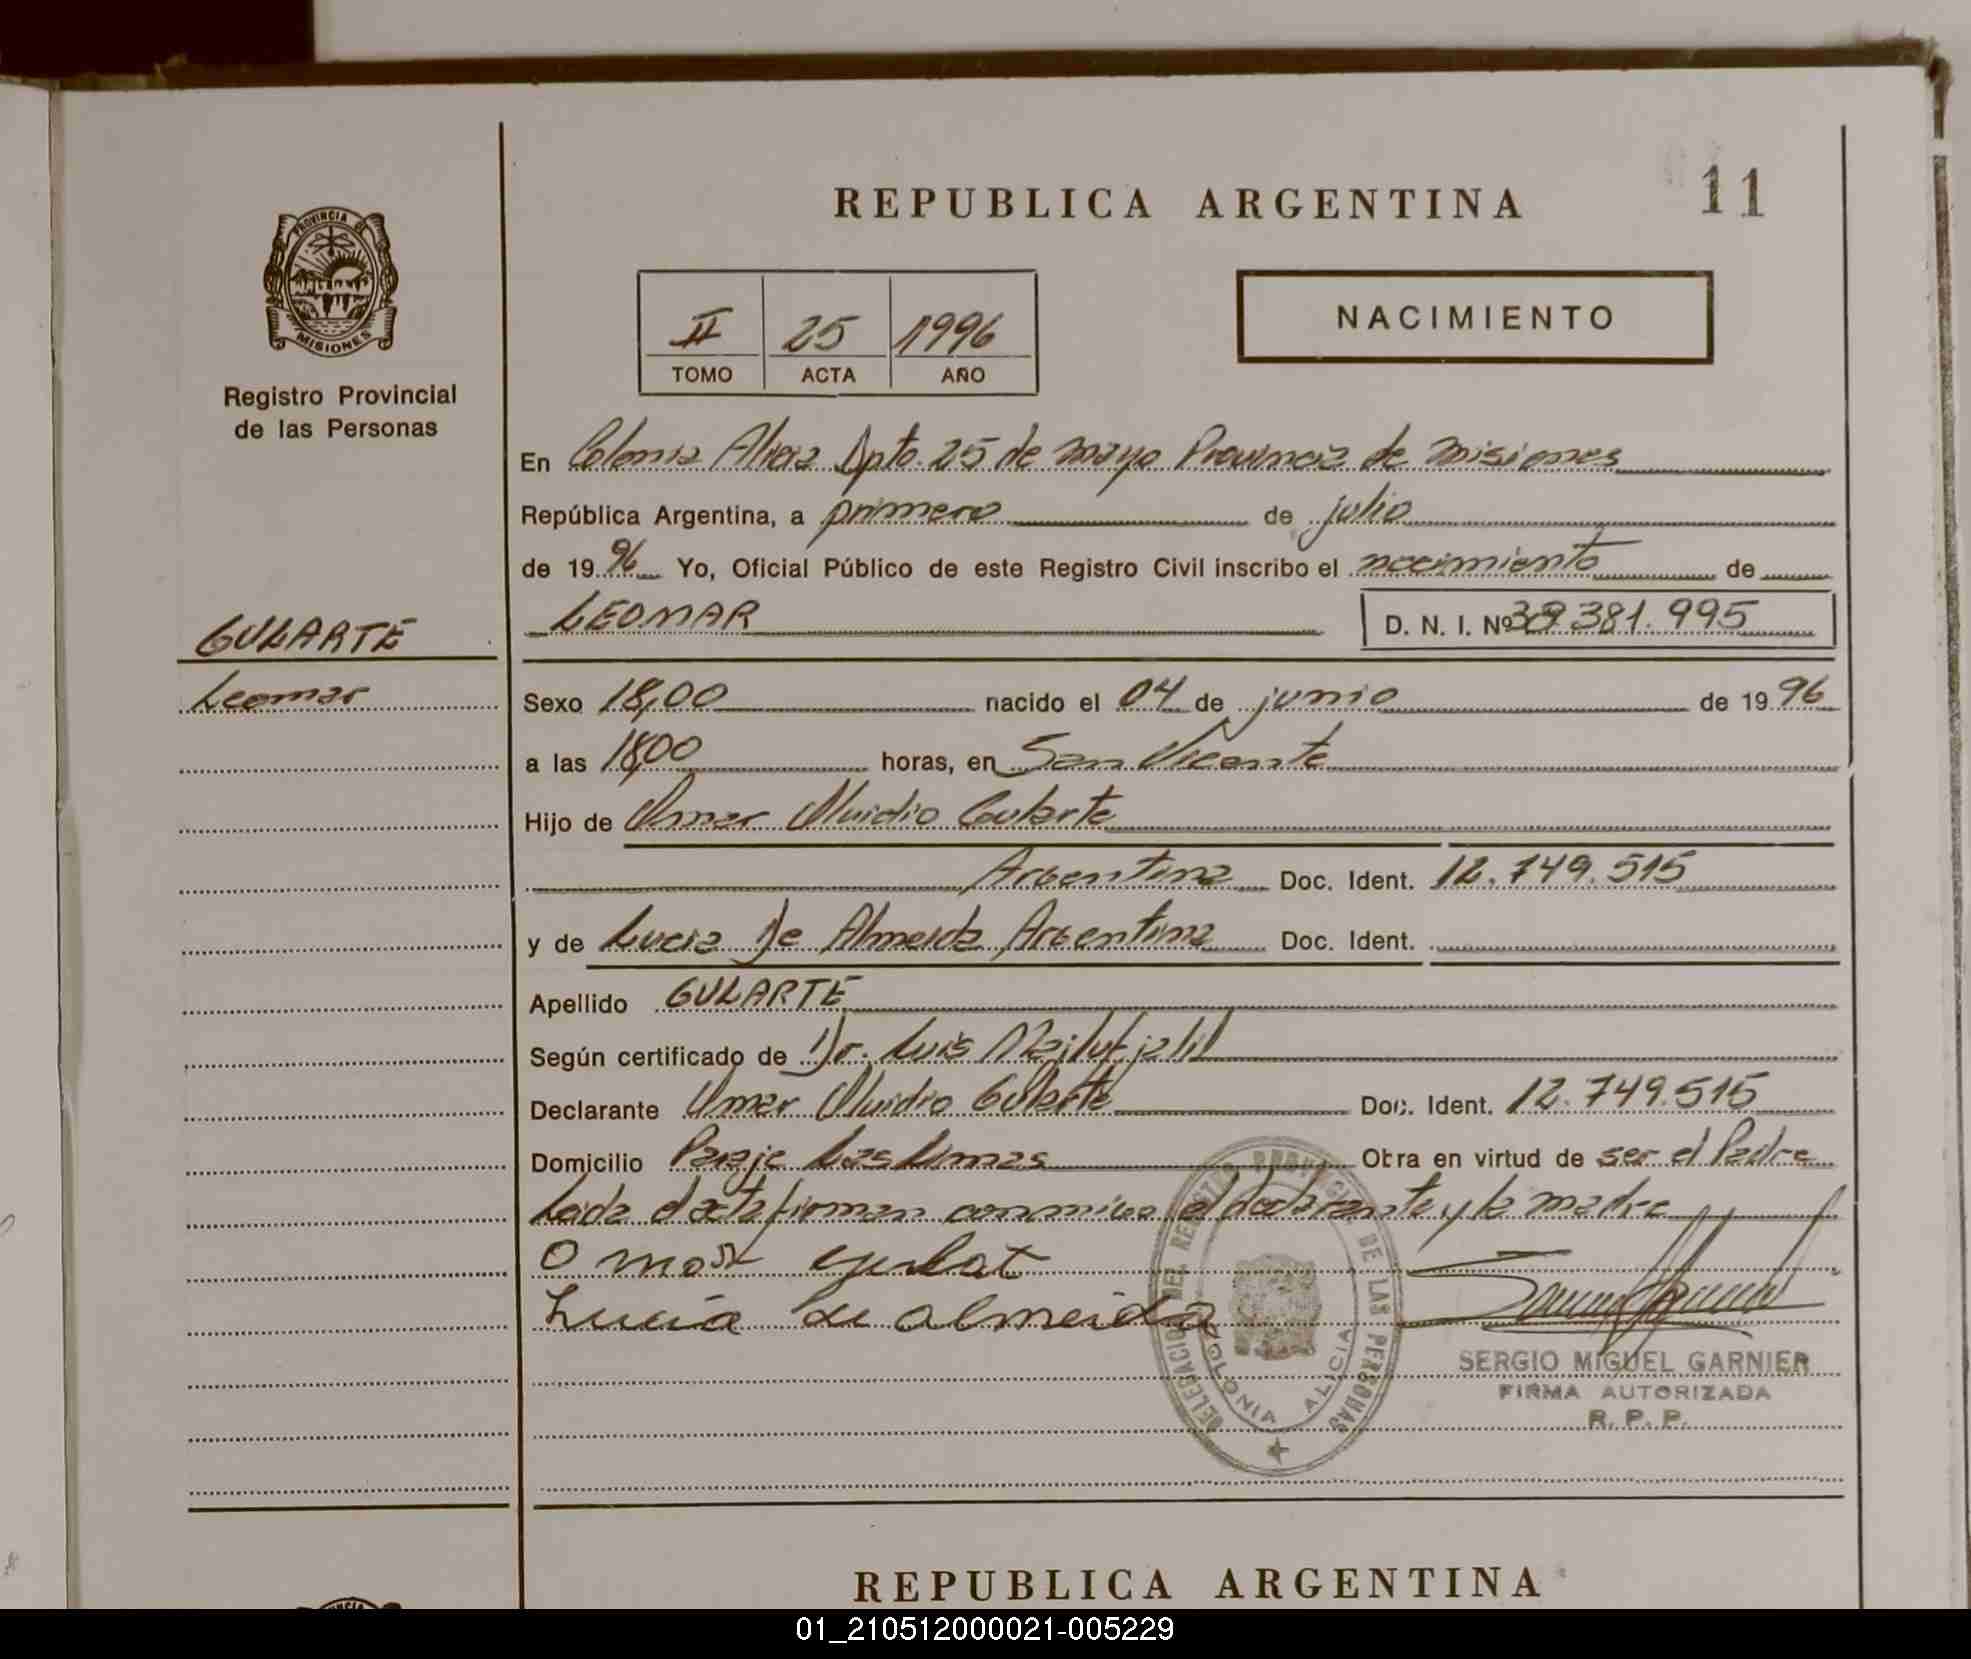 REPUBLICA ARGENTINA
11
PROVINCIA DE
MISIONES
Registro Provincial
de las Personas
II 25 1996
TOMO ACTA AÑO
NACIMIENTO
En Colonia Alicia Dpto. 25 de mayo Provincia de misiones
República Argentina, a primero de julio
de 1996 Yo, Oficial Público de este Registro Civil inscribo el nacimiento de
LEOMAR D. N. I. Nº 39.381.995
GULARTE
Leomar
Sexo 18,00 nacido el 04 de junio de 1996
a las 18,00 horas, en San Vicente
Hijo de Omar Gularte
Argentina Doc. Ident. 12.749.515
y de Lucia De Almeida Argentina Doc. Ident.
Apellido GULARTE
Según certificado de Dr. Luis
Declarante Omar Gularte Doc. Ident. 12.749.515
Domicilio Paraje Las Limas Obra en virtud de ser el Padre
Leida el acta firman conmigo el declarante y la madre
Omar
Lucia De almeida
DELEGACION DEL REGISTRO PROVINCIAL DE LAS PERSONAS
COLONIA ALICIA
SERGIO MIGUEL GARNIER
FIRMA AUTORIZADA
R. P. P.
REPUBLICA ARGENTINA
01_210512000021-005229